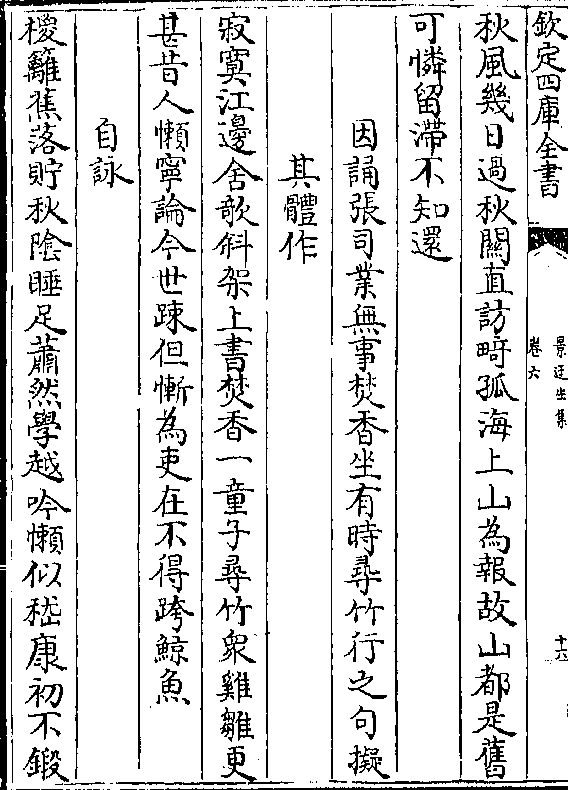 欽定四庫全書
景迂生集
卷六
十六
秋風幾日過秋關直訪畸孤海上山為報故山都是舊
可憐留滯不知還
因誦張司業無事焚香坐有時尋竹行之句擬
其體作
寂寞江邊舍欹斜架上書焚香一童子尋竹衆雞雛更
甚昔人懶寧論今世踈但慚為吏在不得跨鯨魚
自詠
㮨籬蕉落貯秋陰睡足蕭然學越吟懶似嵇康初不鍛